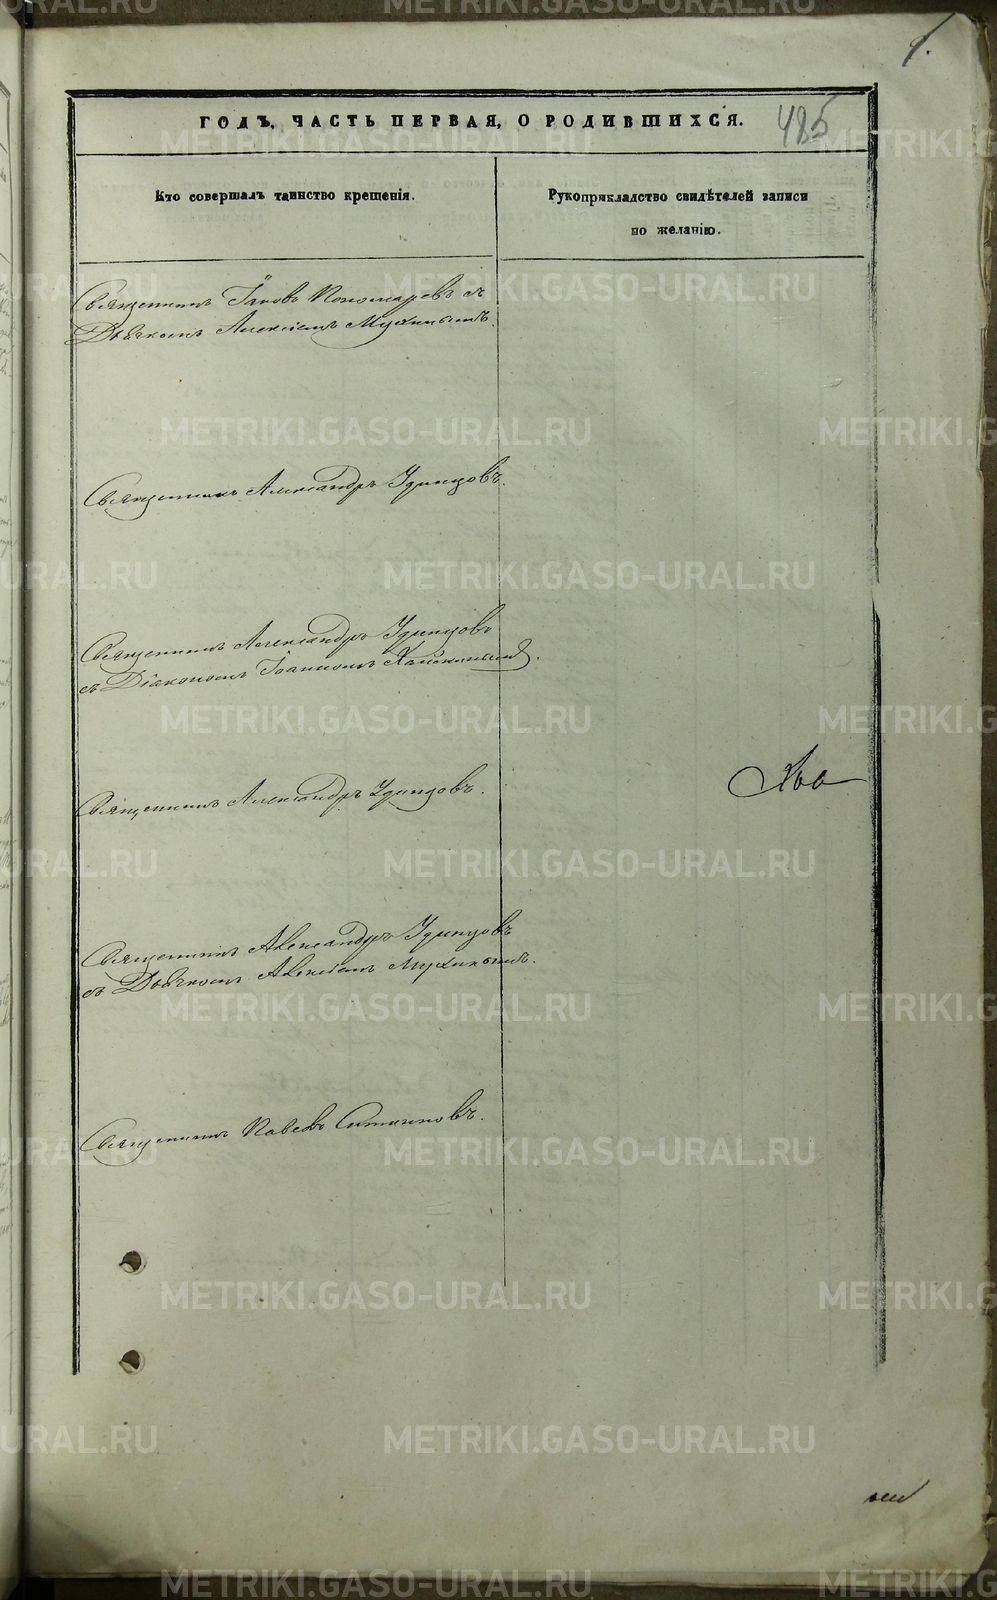 METRIKI.GASO-URAL.RU
1.
ГОДЪ, ЧАСТЬ ПЕРВАЯ, О РОДИВШИХСЯ.
485
Кто совершалъ таинство крещенія.
Рукоприкладство свидѣтелей записи
по желанію.
Священникъ Іаковъ Пономаревъ съ
Дьячкомъ Алексіемъ Мухинымъ.
Священникъ Александръ Удинцовъ.
Священникъ Александръ Удинцовъ
съ Діакономъ Іоанномъ
Священникъ Александръ Удинцовъ.
Священникъ Александръ Удинцовъ
съ Дьячкомъ Алексіемъ Мухинымъ.
Священникъ Павелъ Ситниковъ.